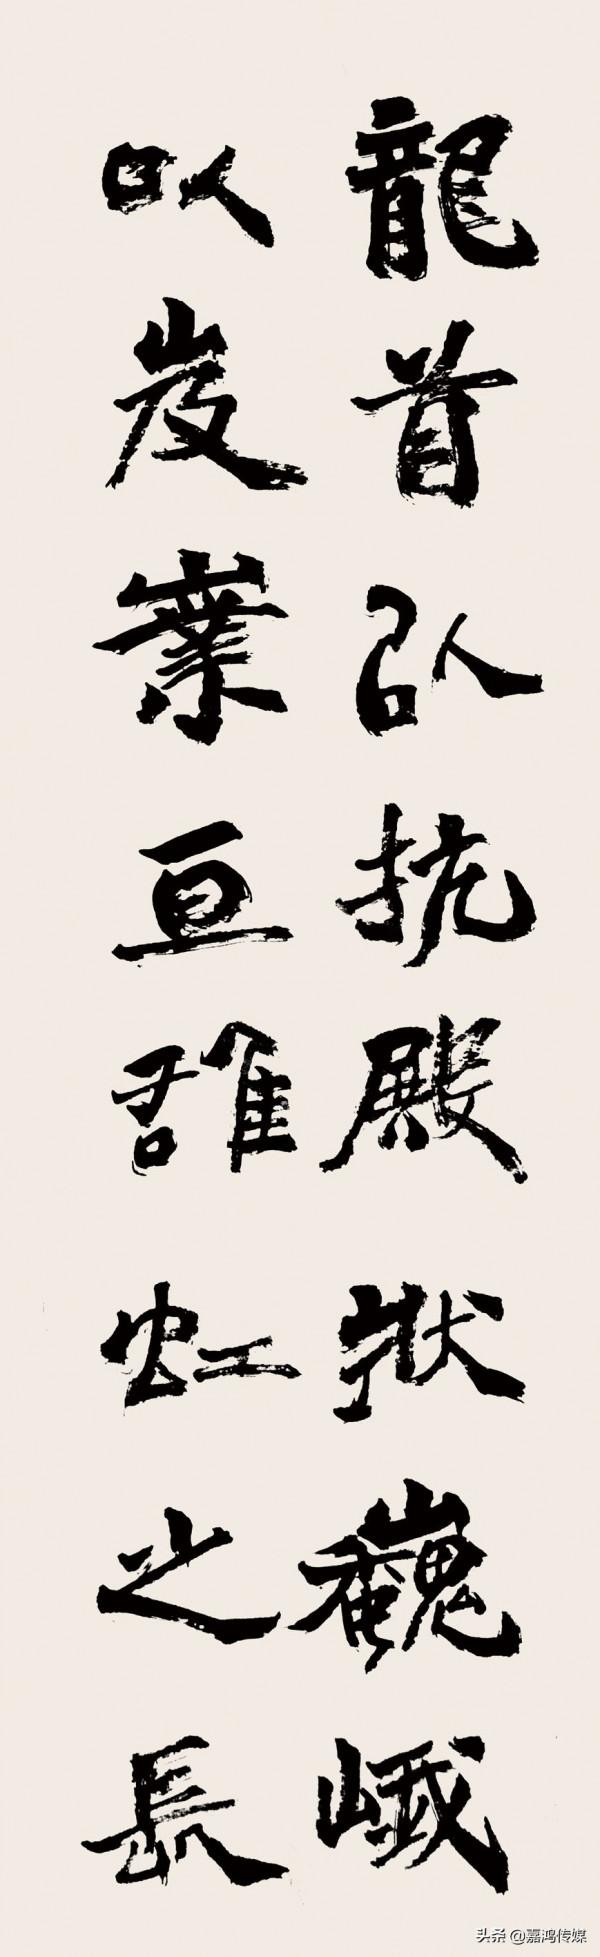 龍首以抗殿狀巍峨
以岌嶪亘雄虹之長
头条 @嘉鸿传媒